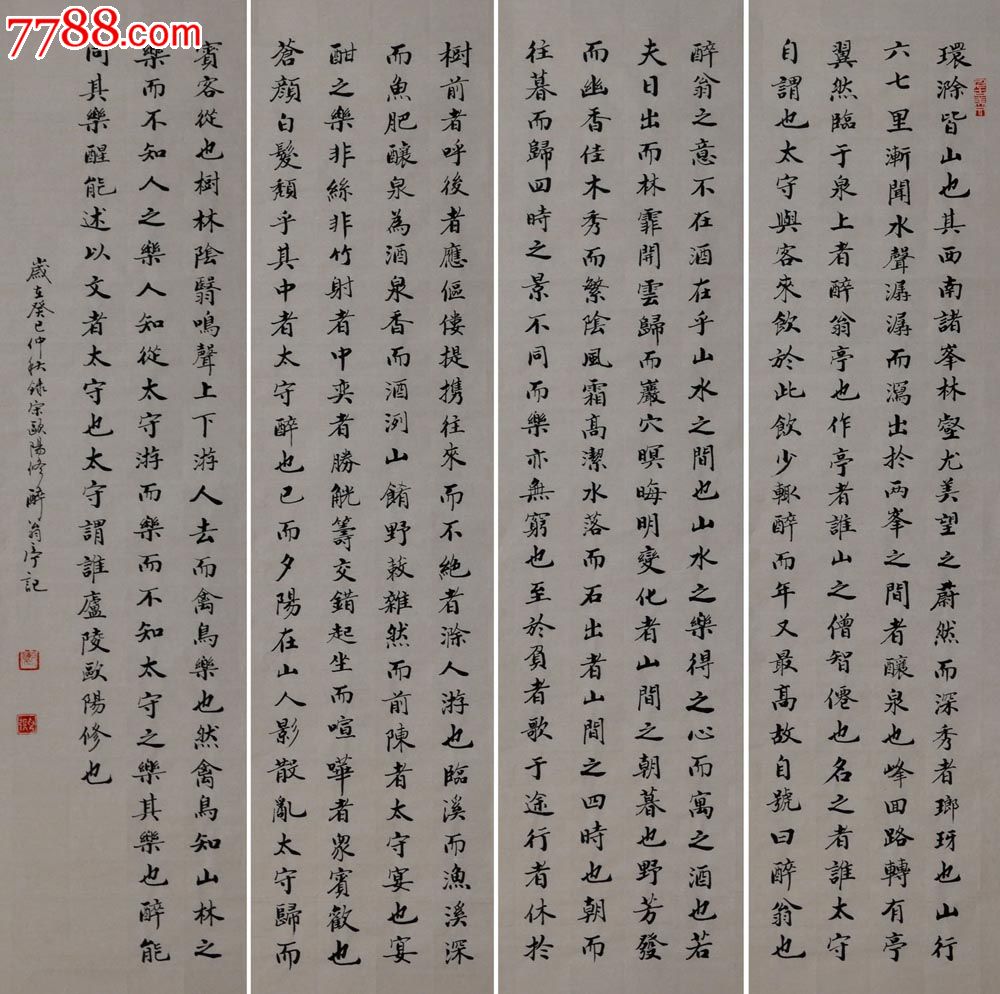 7788.com
環滁皆山也其西南諸峯林壑尤美望之蔚然而深秀者瑯玡也山行
六七里漸聞水聲潺潺而瀉出於两峯之間者釀泉也峰回路轉有亭
翼然臨于泉上者醉翁亭也作亭者誰山之僧智僊也名之者誰太守
自謂也太守與客來飲於此飲少輒醉而年又最高故自號曰醉翁也
醉翁之意不在酒在乎山水之間也山水之樂得之心而寓之酒也若
夫日出而林霏開雲歸而巖穴暝晦明變化者山間之朝暮也野芳發
而幽香佳木秀而繁陰風霜高潔水落而石出者山間之四時也朝而
往暮而歸四時之景不同而樂亦無窮也至於負者歌于途行者休於
樹前者呼後者應傴僂提携往來而不絶者滁人游也臨溪而漁溪深
而魚肥釀泉為酒泉香而酒洌山餚野蔌雜然而前陳者太守宴也宴
酣之樂非絲非竹射者中奕者勝觥籌交錯起坐而喧嘩者衆賓歡也
蒼顔白髮頹乎其中者太守醉也已而夕陽在山人影散亂太守歸而
賓客從也樹林陰翳鳴聲上下游人去而禽鳥樂也然禽鳥知山林之
樂而不知人之樂人知從太守游而樂而不知太守之樂其樂也醉能
同其樂醒能述以文者太守也太守謂誰廬陵歐陽修也
歲在癸巳仲秋録宋歐陽修醉翁亭記